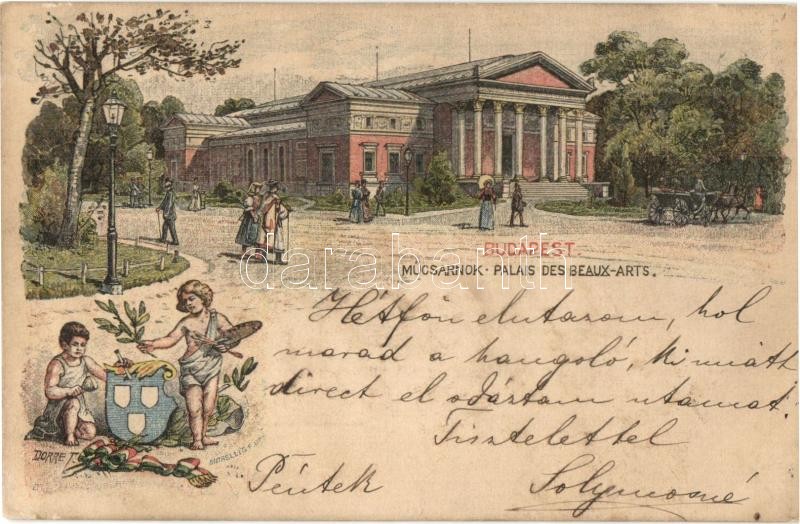 BUDAPEST.
MŰCSARNOK · PALAIS DES BEAUX-ARTS.
darabanth.com
Hétfőn elutazom, hol
marad a hangoló, ki miatt
direct elodáztam utamat.
Tisztelettel
DORRE T.
Péntek Solymosné